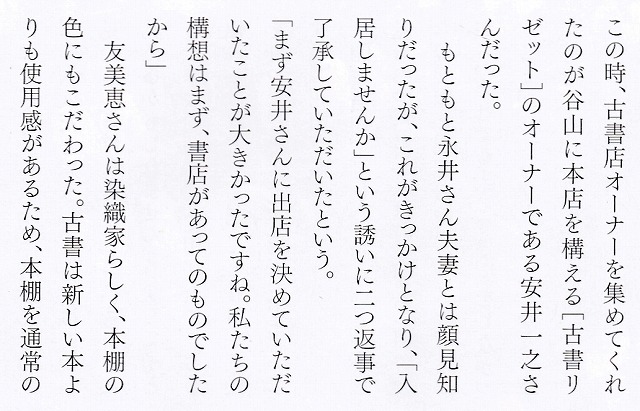 この時、古書店オーナーを集めてくれ
たのが谷山に本店を構える［古書リ
ゼット］のオーナーである安井一之さ
んだった。
　もともと永井さん夫妻とは顔見知
りだったが、これがきっかけとなり、「入
居しませんか」という誘いに二つ返事で
了承していただいたという。
「まず安井さんに出店を決めていただ
いたことが大きかったですね。私たちの
構想はまず、書店があってのものでした
から」
　友美恵さんは染織家らしく、本棚の
色にもこだわった。古書は新しい本よ
りも使用感があるため、本棚を通常の